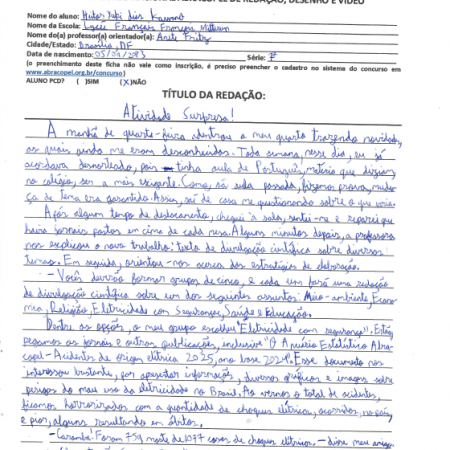 Nome do aluno:
Nome da Escola: Lycée Français François Mitterrand
Nome do(a) professor(a) orientador(a): Anete Fritz
Cidade/Estado: Brasília, DF
Data de nascimento: 05/04/2013 Série: 7ª
(o preenchimento desta ficha não vale como inscrição, é preciso preencher o cadastro no sistema do concurso em
www.abracopel.org.br/concurso)
ALUNO PCD? ( )SIM (X)NÃO
TÍTULO DA REDAÇÃO:
Atividade Surpresa!
A manhã de quarta-feira adentrou a meu quarto trazendo novidades,
as quais ainda me eram desconhecidas. Toda semana, nesse dia, eu já
acordava desnorteado, pois tinha aula de Português, matéria que diziam,
no colégio, ser a mais exigente. Como, só semana passada, fizemos prova, mudan-
ça de tema era garantida. Assim, saí de casa me questionando sobre o que viria.
Após algum tempo de deslocamento, cheguei à sala, sentei-me e reparei que
havia jornais postos em cima de cada mesa. Alguns minutos depois, a professora
nos explicou o novo trabalho: texto de divulgação científica sobre diversos
temas. Em seguida, orientou-nos acerca das estratégias de elaboração.
- Vocês deverão formar grupos de cinco, e cada um fará uma redação
de divulgação científica sobre um dos seguintes assuntos: Meio-ambiente, Econo-
mia, Religião, Eletricidade com Segurança, Saúde e Educação.
Dentre as opções, o meu grupo escolheu "Eletricidade com segurança". Então,
pegamos os jornais e outras publicações, inclusive "O Anuário Estatístico Abra-
copel - Acidentes de origem elétrica 2025, ano base 2024". Esse documento nos
interessou bastante, por apresentar informação, diversos gráficos e imagens sobre
perigos do mau uso da eletricidade no Brasil. Ao vermos o total de acidentes,
ficamos horrorizados com a quantidade de choques elétricos, ocorridos, no país,
e pior, alguns resultando em óbitos.
- Caramba! Foram 759 mortes de 1077 casos de choques elétricos. - disse meu amigo